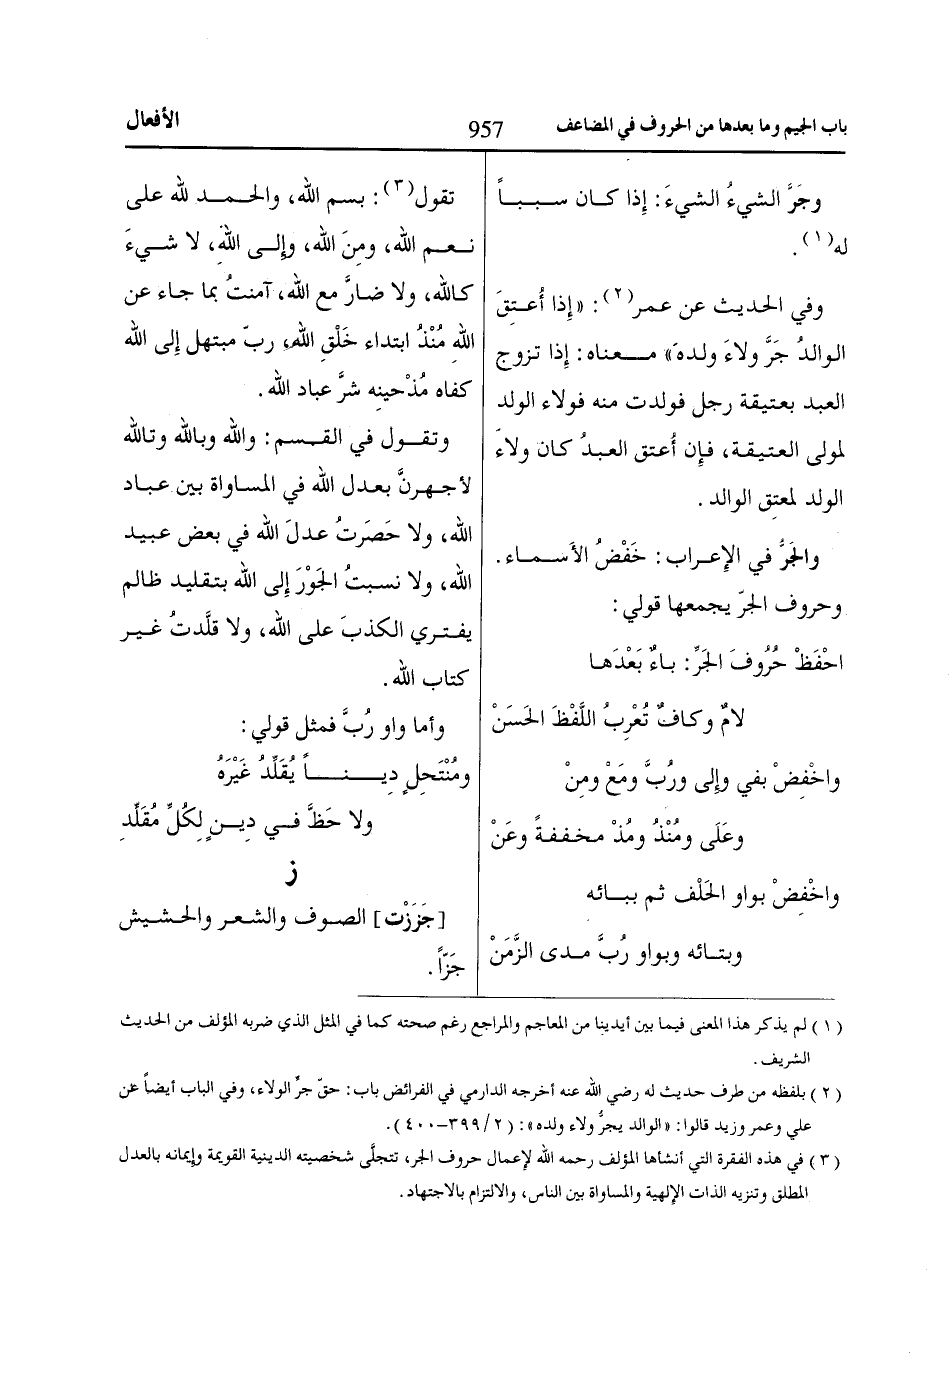 باب الجيم وما بعدها من الحروف في المضاعف
957
الأفعال
وجَرَّ الشيءُ الشيءَ: إذا كـان سـبـبـاً
له(١).
وفي الحديث عن عمر(٢): «إذا أُعـتِقَ
الوالدُ جَرَّ ولاءَ ولده» مـعناه: إذا تزوج
العبد بعتيقة رجل فولدت منه فولاء الولد
لمولى العتيقة، فإن أُعتق العبدُ كان ولاءُ
الولد لمعتق الوالد.
والجَرُّ في الإعـراب: خَفْضُ الأسـماء.
وحروف الجرّ يجمعها قولي:
احْفَظْ حُرُوفَ الجَرِّ: بـاءٌ بَعْدَهـا
لامٌ وكافٌ تُعْرِبُ اللَّفْظَ الحَسَنْ
واخْفضْ بفي وإلى ورُبَّ ومَعْ ومِنْ
وعَلَى ومُنْذُ ومُذْ مخففةً وعَنْ
واخْفضْ بواو الحَلْف ثم ببـائه
وبتـائه وبواو رُبَّ مدى الزَّمَنْ
تقول(٣): بسم الله، والحـمـد لله على
نـعـم الله، ومنَ الله، وإلـى الله، لا شـيءَ
كالله، ولا ضارَّ مع الله، آمنتُ بما جاء عن
الله مُنْذُ ابتداء خَلْقِ الله، ربّ مبتهل إلى الله
كفاه مُذْحينه شرَّ عباد الله.
وتقـول في القـسم: والله وبالله وتالله
لأجهرنَّ بعدل الله في المساواة بين عباد
الله، ولا حصَرَتُ عدلَ الله في بعض عبيد
الله، ولا نسبتُ الجَوْرَ إلى الله بتقليد ظالم
يفتـري الكذبَ على الله، ولا قلَّدتُ غـير
كتاب الله.
وأما واو رُبَّ فمثل قولي:
ومُنْتَحِلٍ ديـنـاً يُقَلِّدُ غَيْرَهُ
ولا حَظَّ فـي ديـنٍ لِكُلِّ مُقَلِّد
ز
[جَزَزْت] الصوف والشعر والحشيش
جَزّاً.
(١) لم يذكر هذا المعنى فيما بين أيدينا من المعاجم والمراجع رغم صحته كما في المثل الذي ضربه المؤلف من الحديث
الشريف.
(٢) بلفظه من طرف حديث له رضي الله عنه أخرجه الدارمي في الفرائض باب: حقّ جرِّ الولاء، وفي الباب أيضاً عن
علي وعمر وزيد قالوا: «الوالد يجرُّ ولاء ولده»: (٢/٣٩٩-٤٠٠).
(٣) في هذه الفقرة التي أنشاها المؤلف رحمه الله لإعمال حروف الجر، تتجلَّى شخصيته الدينية القويمة وإيمانه بالعدل
المطلق وتنزيه الذات الإلهية والمساواة بين الناس، والالتزام بالاجتهاد.